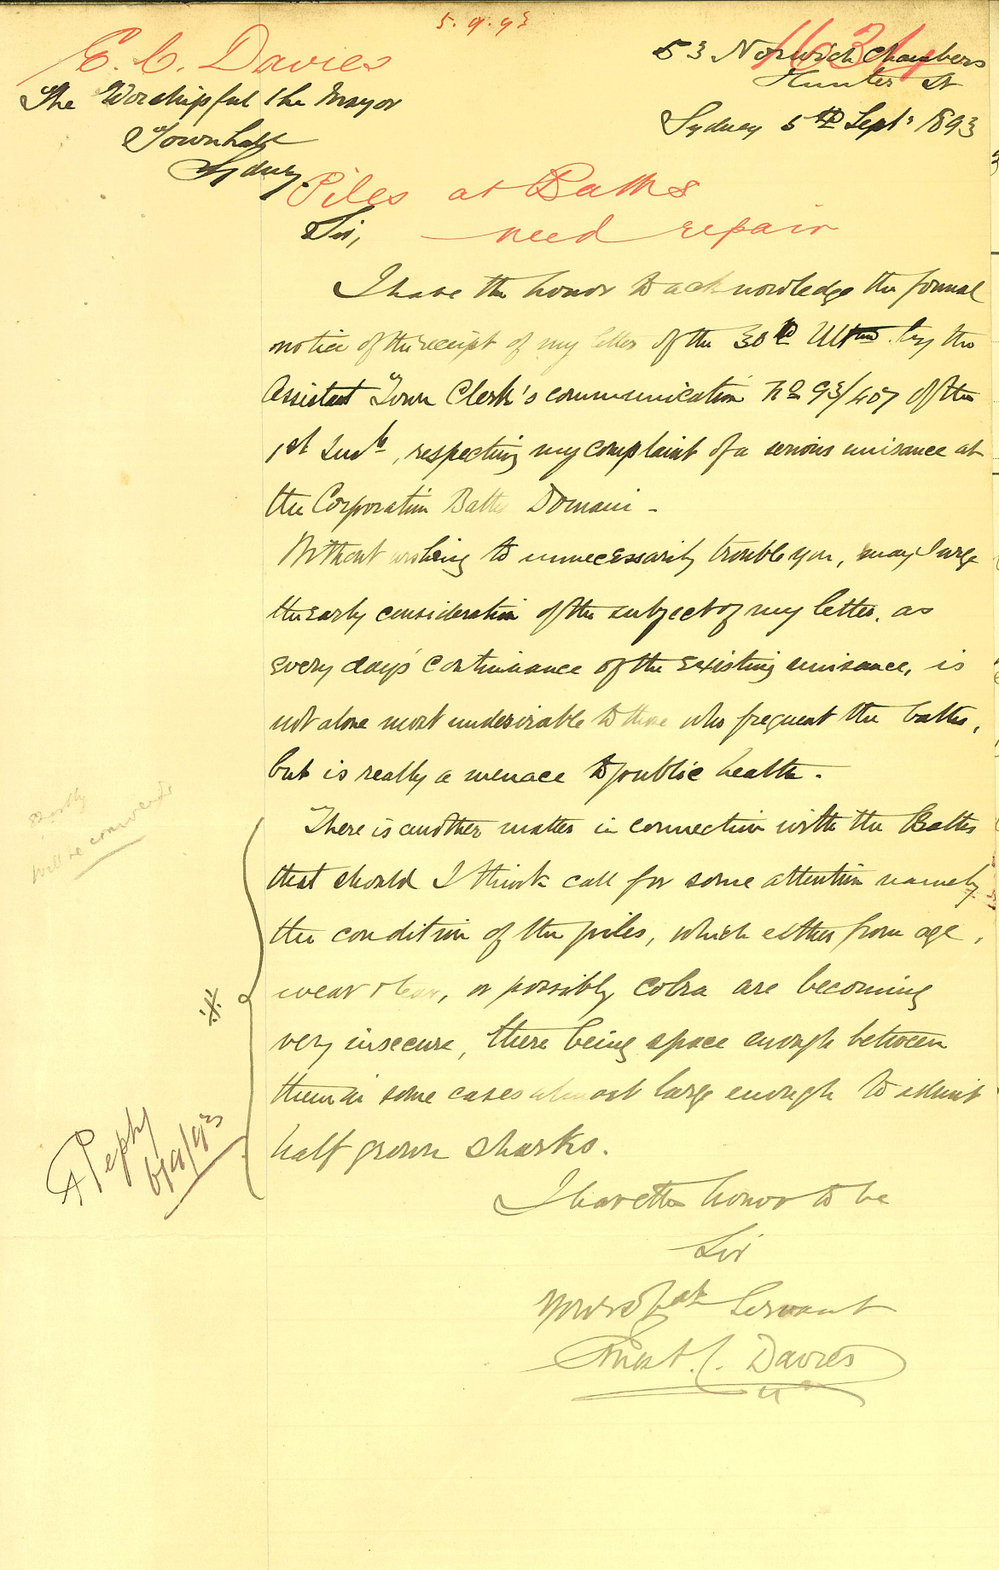 5.9.93
E. C. Davies
1634
53 Norwich Chambers
Hunter St
Sydney 5th Sept. 1893
The Worshipful the Mayor
Townhall
Sydney.
Piles at Baths
need repair
Sir,
I have the honor to acknowledge the formal
notice of the receipt of my letter of the 30th Ultmo. by the
Assistant Town Clerk's communication No 93/407 of the
1st Inst, respecting my complaint of a serious nuisance at
the Corporation Baths Domain -
Without wishing to unnecessarily trouble you, may I urge
the early consideration of the subject of my letter, as
every day's continuance of the existing nuisance, is
not alone most undesirable to those who frequent the baths,
but is really a menace to public health.
There is another matter in connection with the Baths
that should I think call for some attention namely
the condition of the piles, which either from age,
wear & tear, or possibly cobra are becoming
very insecure, there being space enough between
them in some cases almost large enough to admit
half grown sharks.
I have the honor to be
Sir
Your obdt Servant
Ernest. C. Davies
will be
6/9/93